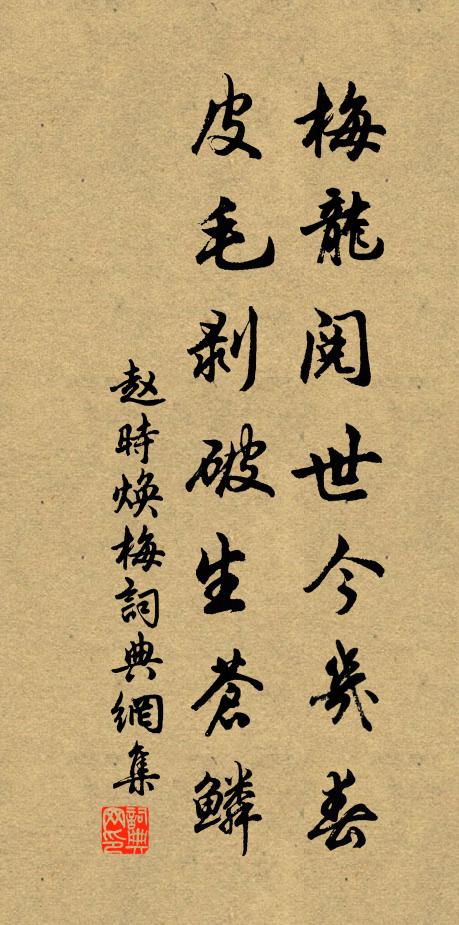 梅龍閱世今幾春
皮毛剥破生蒼鱗
赵時焕梅詞典網集
詞典网印